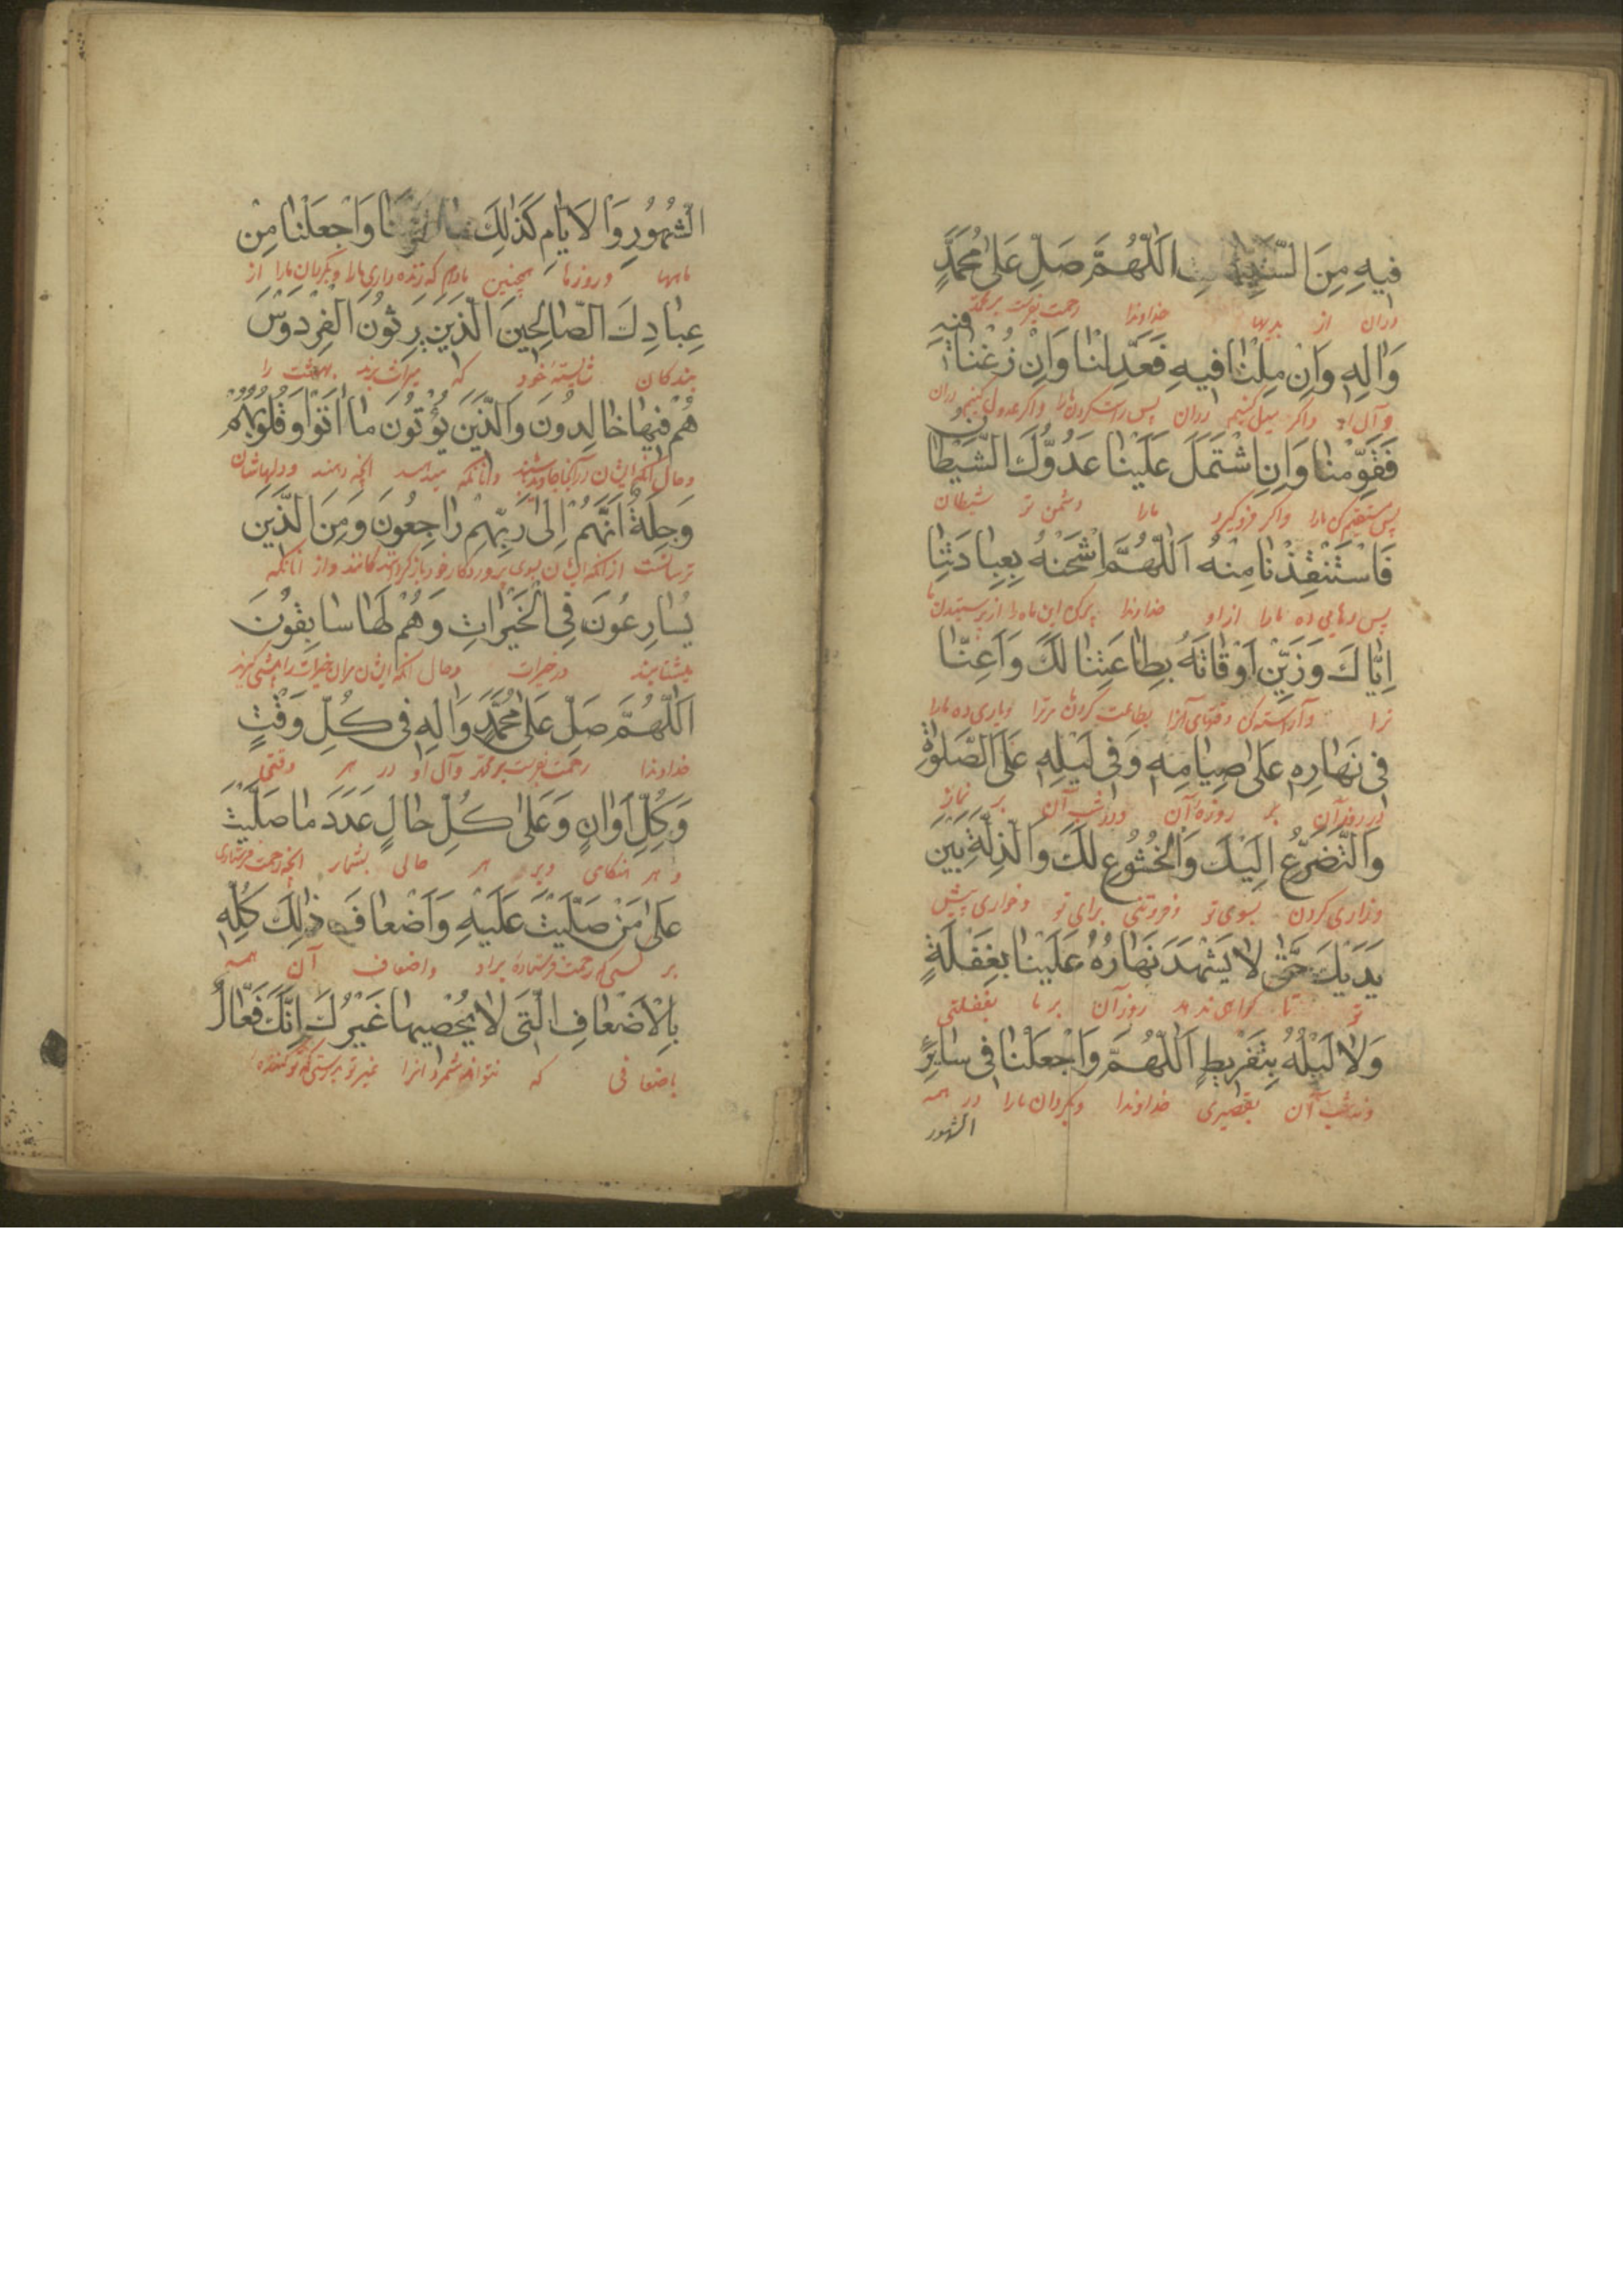 فِيهِ مِنَ السَّيِّئَاتِ اَللّٰهُمَّ صَلِّ عَلٰى مُحَمَّدٍ
دران از بدیها خداوندا رحمت بفرست بر محمد
وَاٰلِهِ وَاِنْ مِلْنٰا فيهِ فَعَدِّلْنٰا وَاِنْ زُغْنٰا فيهِ
و آل او واکر میل کنیم دران پس راست کردان مارا واکر عدول کنیم دران
فَقَوِّمْنٰا وَاِنِ اشْتَمَلَ عَلَيْنٰا عَدُوُّكَ الشَّيْطٰانُ
پس مستقیم کن مارا واکر فروکیرد مارا دشمن تو شیطان
فَاسْتَنْقِذْنٰا مِنْهُ اَللّٰهُمَّ اشْحَنْهُ بِعِبٰادَتِنٰا
پس رهایی ده مارا ازاو خداوندا پرکن این ماه را از پرستیدن ما
اِيّٰاكَ وَزَيِّنْ اَوْقٰاتَهُ بِطٰاعَتِنٰا لَكَ وَاَعِنّٰا
ترا وآراسته کن وقتهای آنرا بطاعت کردن ما مرترا ویاری ده مارا
فى نَهٰارِهِ عَلىٰ صِيٰامِهِ وَفى لَيْلِهِ عَلَى الصَّلٰوةِ
در روز آن بر روزهٔ آن ودر شب آن بر نماز
وَالتَّضَرُّعِ اِلَيْكَ وَالْخُشُوعِ لَكَ وَالذِّلَّةِ بَيْنَ
وزاری کردن بسوی تو وفروتنی برای تو وخواری پیش
يَدَيْكَ حَتّٰى لٰا يَشْهَدَ نَهٰارُهُ عَلَيْنٰا بِغَفْلَةٍ
تو تا کواهی ندهد روز آن بر ما بغفلتی
وَلٰا لَيْلُهُ بِتَفْرِيطٍ اَللّٰهُمَّ وَاجْعَلْنٰا فى سٰايِرِ
ونه شب آن بتقصیری خداوندا وبکردان مارا در همه
الشهور
الشُّهُورِ وَالْاَيّٰامِ كَذٰلِكَ مٰا عَمَّرْتَنٰا وَاجْعَلْنٰا مِنْ
ماهها وروزها همچنین مادام که زنده داری مارا وبکردان مارا از
عِبٰادِكَ الصّٰالِحِينَ الَّذِينَ يَرِثُونَ الْفِرْدَوْسَ
بندکان شایستهٔ خود که میراث برند بهشت را
هُمْ فيهٰا خٰالِدُونَ وَالَّذِينَ يُؤْتُونَ مٰا اٰتَوْا وَقُلُوبُهُمْ
وحال آنکه ایشان در آنجا جاوید باشند وآنانکه میدهند آنچه دهند ودلهاشان
وَجِلَةٌ اَنَّهُمْ اِلىٰ رَبِّهِمْ رٰاجِعُونَ وَمِنَ الَّذِينَ
ترسانست از آنکه ایشان بسوی پروردکار خود بازکردندکانند واز آنانکه
يُسٰارِعُونَ فِى الْخَيْرٰاتِ وَهُمْ لَهٰا سٰابِقُونَ
میشتابند در خیرات وحال آنکه ایشان مران خیرات را پیشی کیرند
اَللّٰهُمَّ صَلِّ عَلىٰ مُحَمَّدٍ وَاٰلِهِ فى كُلِّ وَقْتٍ
خداوندا رحمت بفرست بر محمد وآل او در هر وقتی
وَكُلِّ اَوٰانٍ وَعَلىٰ كُلِّ حٰالٍ عَدَدَ مٰا صَلَّيْتَ
و هر هنکامی وبر هر حالی بشمار آنچه رحمت فرستادی
عَلىٰ مَنْ صَلَّيْتَ عَلَيْهِ وَاَضْعٰافَ ذٰلِكَ كُلِّهِ
بر کسی که رحمت فرستادهٔ براو واضعاف آن همه
بِالْاَضْعٰافِ الَّتى لٰا يُحْصيهٰا غَيْرُكَ اِنَّكَ فَعّٰالٌ
باضعافی که نتواند شمرد آنرا غیر تو بدرستی که تو کننده